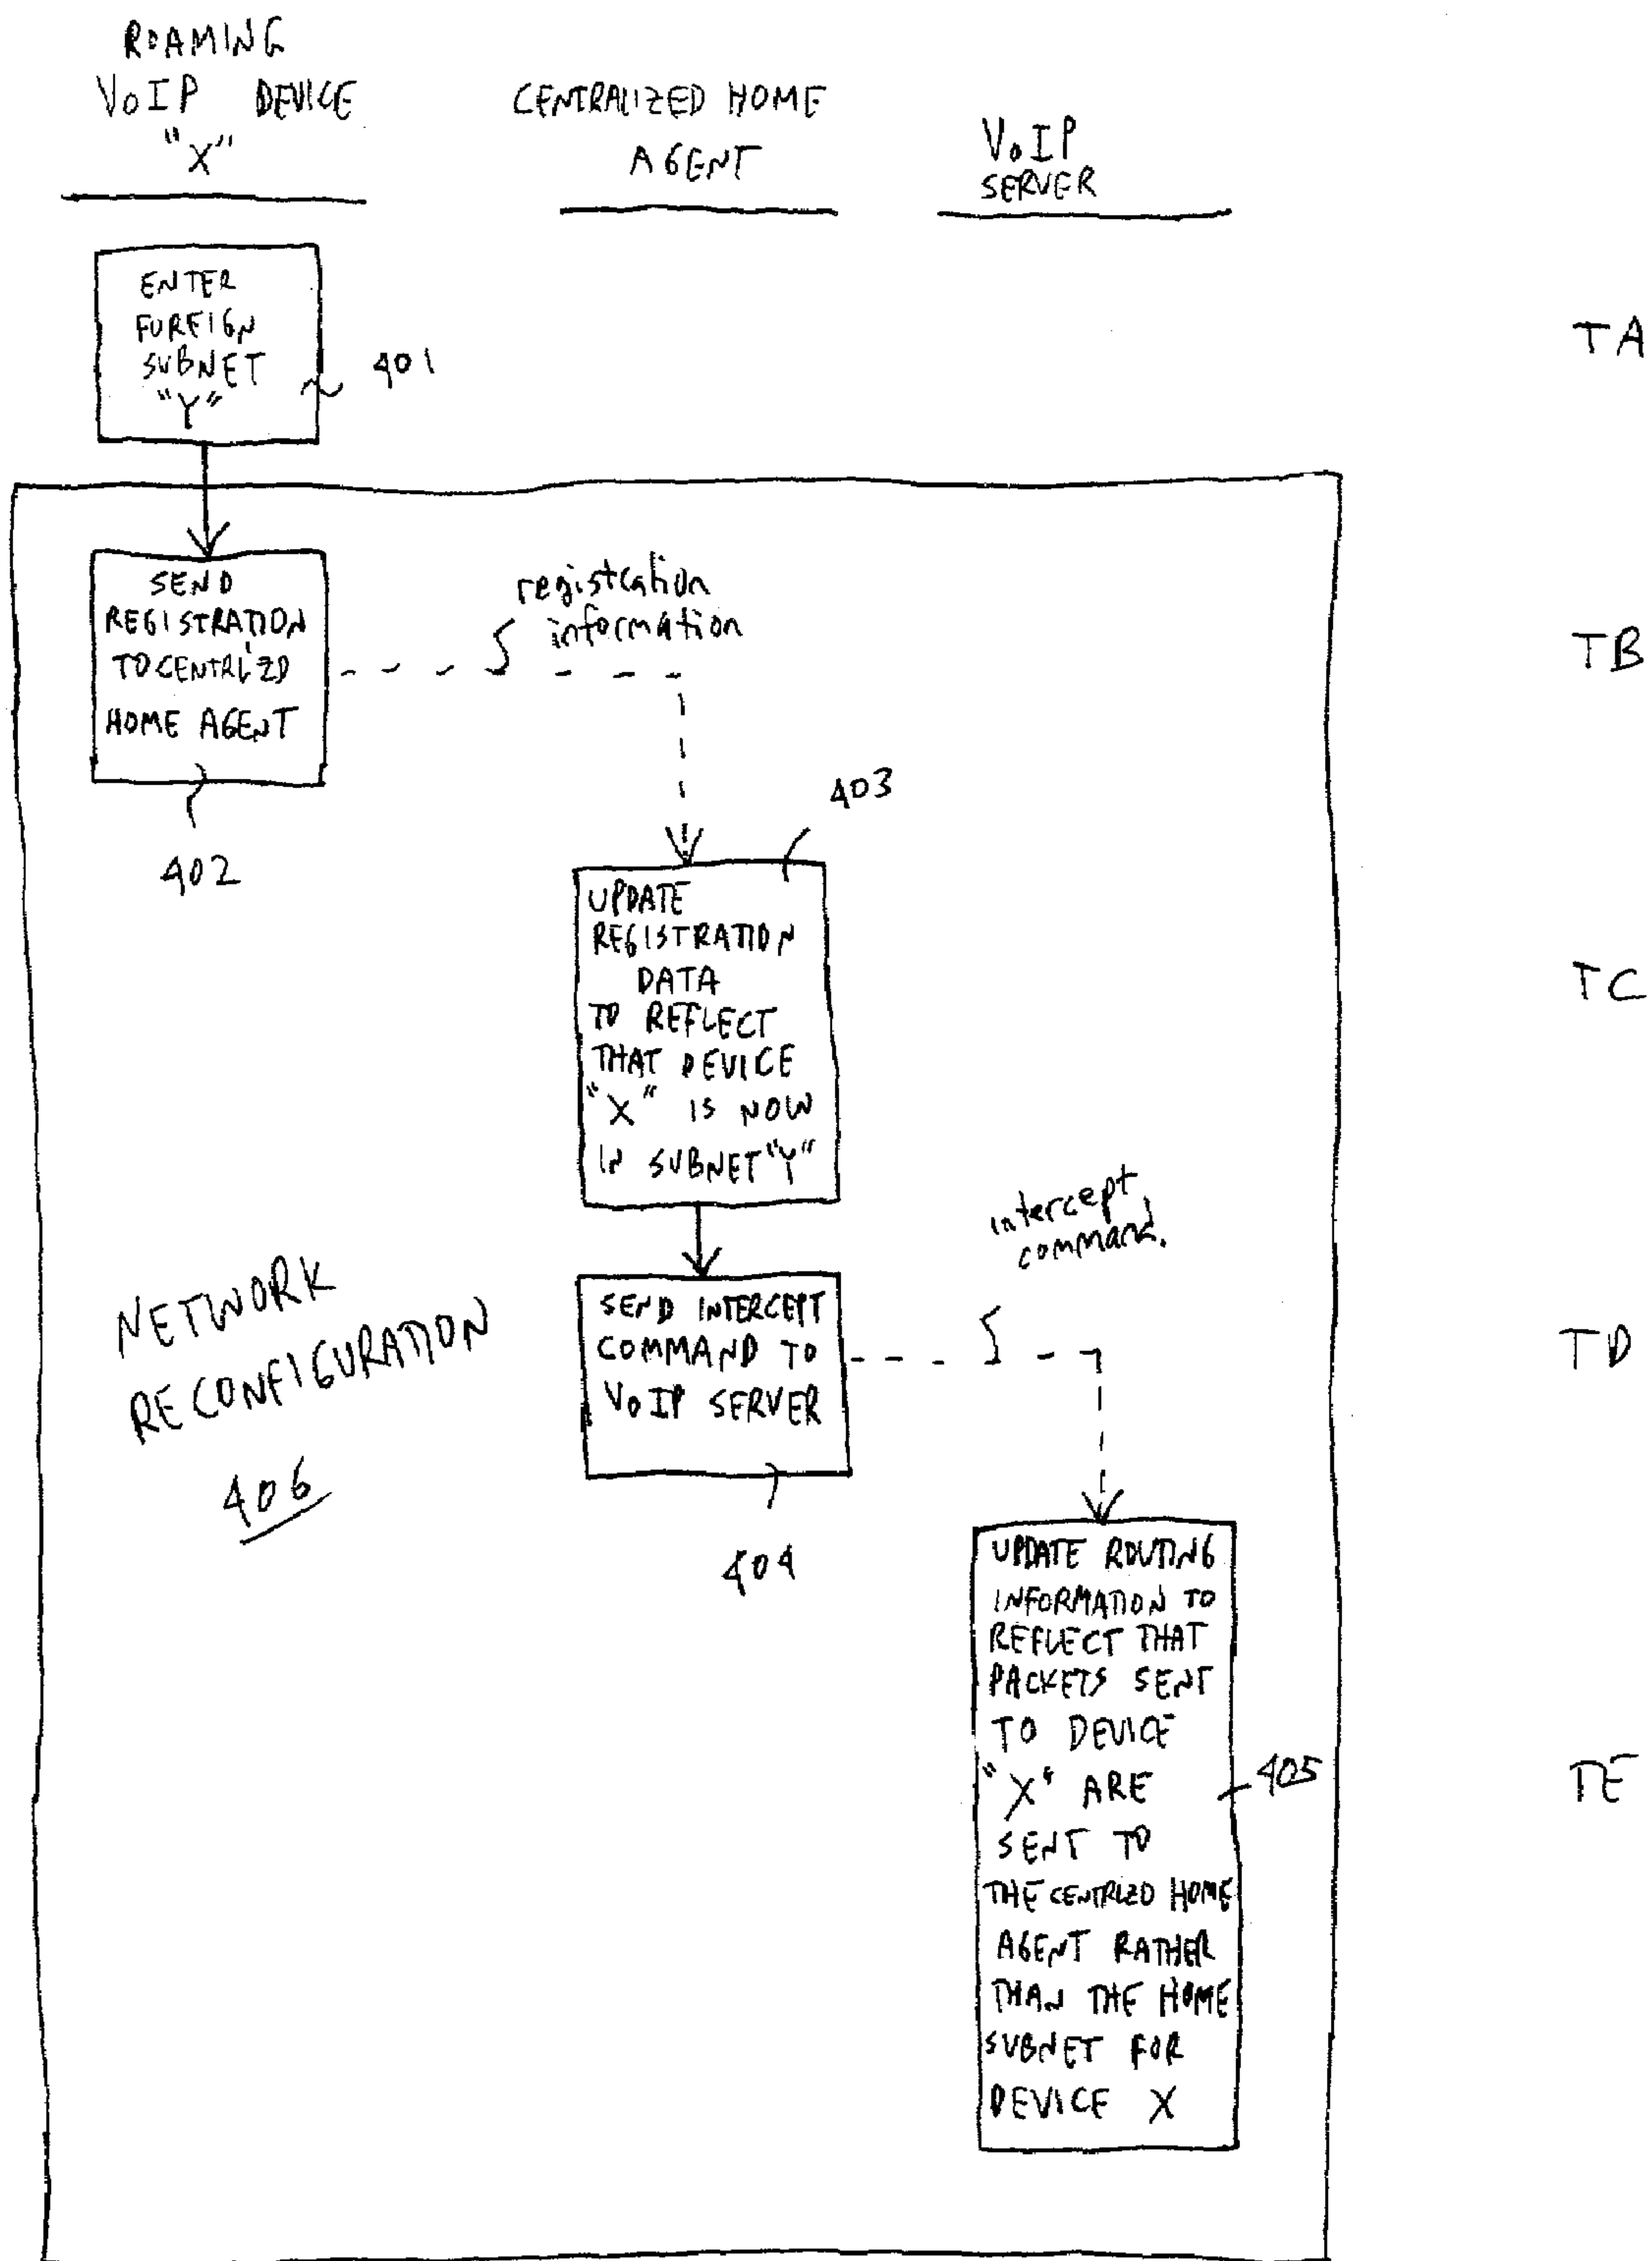 ROAMING
VoIP DEVICE
"X"
CENTRALIZED HOME
AGENT
VoIP
SERVER
ENTER
FOREIGN
SUBNET
"Y"
401
TA
SEND
REGISTRATION
TO CENTRLIZD
HOME AGENT
402
registration
information
TB
403
UPDATE
REGISTRATION
DATA
TO REFLECT
THAT DEVICE
"X" IS NOW
IN SUBNET "Y"
TC
NETWORK
RECONFIGURATION
406
SEND INTERCEPT
COMMAND TO
VoIP SERVER
404
intercept
command
TD
UPDATE ROUTING
INFORMATION TO
REFLECT THAT
PACKETS SENT
TO DEVICE
"X" ARE
SENT TO
THE CENTRLZD HOME
AGENT RATHER
THAN THE HOME
SUBNET FOR
DEVICE X
405
TE